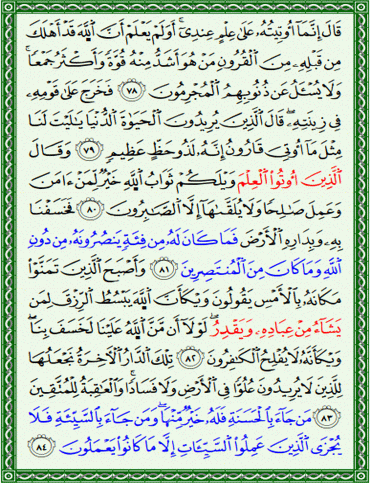 قَالَ إِنَّمَآ أُوتِيتُهُۥ عَلَىٰ عِلْمٍ عِندِىٓ ۚ أَوَلَمْ يَعْلَمْ أَنَّ ٱللَّهَ قَدْ أَهْلَكَ
مِن قَبْلِهِۦ مِنَ ٱلْقُرُونِ مَنْ هُوَ أَشَدُّ مِنْهُ قُوَّةً وَأَكْثَرُ جَمْعًا ۚ
وَلَا يُسْـَٔلُ عَن ذُنُوبِهِمُ ٱلْمُجْرِمُونَ ٧٨ فَخَرَجَ عَلَىٰ قَوْمِهِۦ
فِى زِينَتِهِۦ ۖ قَالَ ٱلَّذِينَ يُرِيدُونَ ٱلْحَيَوٰةَ ٱلدُّنْيَا يَـٰلَيْتَ لَنَا
مِثْلَ مَآ أُوتِىَ قَـٰرُونُ إِنَّهُۥ لَذُو حَظٍّ عَظِيمٍ ٧٩ وَقَالَ
ٱلَّذِينَ أُوتُوا۟ ٱلْعِلْمَ وَيْلَكُمْ ثَوَابُ ٱللَّهِ خَيْرٌ لِّمَنْ ءَامَنَ
وَعَمِلَ صَـٰلِحًا وَلَا يُلَقَّىٰهَآ إِلَّا ٱلصَّـٰبِرُونَ ٨٠ فَخَسَفْنَا
بِهِۦ وَبِدَارِهِ ٱلْأَرْضَ فَمَا كَانَ لَهُۥ مِن فِئَةٍ يَنصُرُونَهُۥ مِن دُونِ
ٱللَّهِ وَمَا كَانَ مِنَ ٱلْمُنتَصِرِينَ ٨١ وَأَصْبَحَ ٱلَّذِينَ تَمَنَّوْا۟
مَكَانَهُۥ بِٱلْأَمْسِ يَقُولُونَ وَيْكَأَنَّ ٱللَّهَ يَبْسُطُ ٱلرِّزْقَ لِمَن
يَشَآءُ مِنْ عِبَادِهِۦ وَيَقْدِرُ ۖ لَوْلَآ أَن مَّنَّ ٱللَّهُ عَلَيْنَا لَخَسَفَ بِنَا ۖ
وَيْكَأَنَّهُۥ لَا يُفْلِحُ ٱلْكَـٰفِرُونَ ٨٢ تِلْكَ ٱلدَّارُ ٱلْـَٔاخِرَةُ نَجْعَلُهَا
لِلَّذِينَ لَا يُرِيدُونَ عُلُوًّا فِى ٱلْأَرْضِ وَلَا فَسَادًا ۚ وَٱلْعَـٰقِبَةُ لِلْمُتَّقِينَ
٨٣ مَن جَآءَ بِٱلْحَسَنَةِ فَلَهُۥ خَيْرٌ مِّنْهَا ۖ وَمَن جَآءَ بِٱلسَّيِّئَةِ فَلَا
يُجْزَى ٱلَّذِينَ عَمِلُوا۟ ٱلسَّيِّـَٔاتِ إِلَّا مَا كَانُوا۟ يَعْمَلُونَ ٨٤